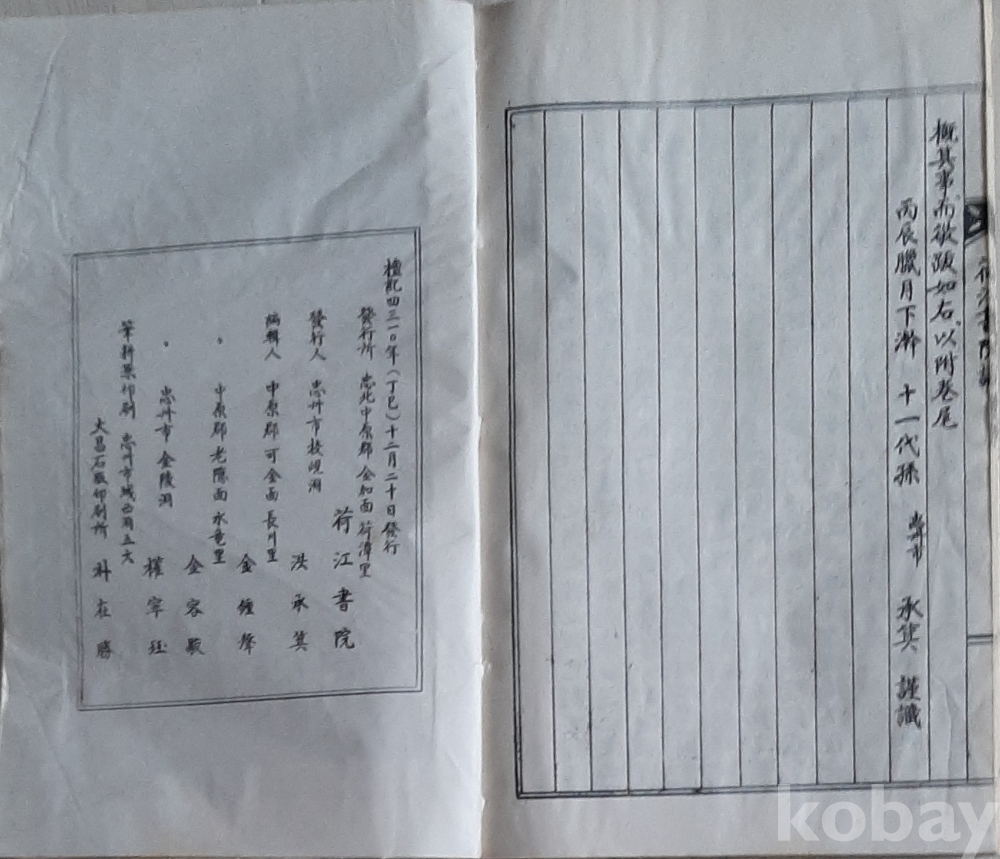 概其事而敬跋如右、以附卷尾
丙辰臘月下澣 十一代孫 承箕 謹識
檀紀四三一〇年(丁巳)十二月二十日發行
發行所 忠北中原郡金加面荷潭里
荷江書院
發行人 忠州市校峴洞 洪承箕
編輯人 中原郡可金面長川里 金鍾
〃 中原郡老隱面水竜里 金容
〃 忠州市金陵洞 權寧
筆耕兼印刷 忠州市城西洞五六
大昌石版印刷所 朴在勝
kobay